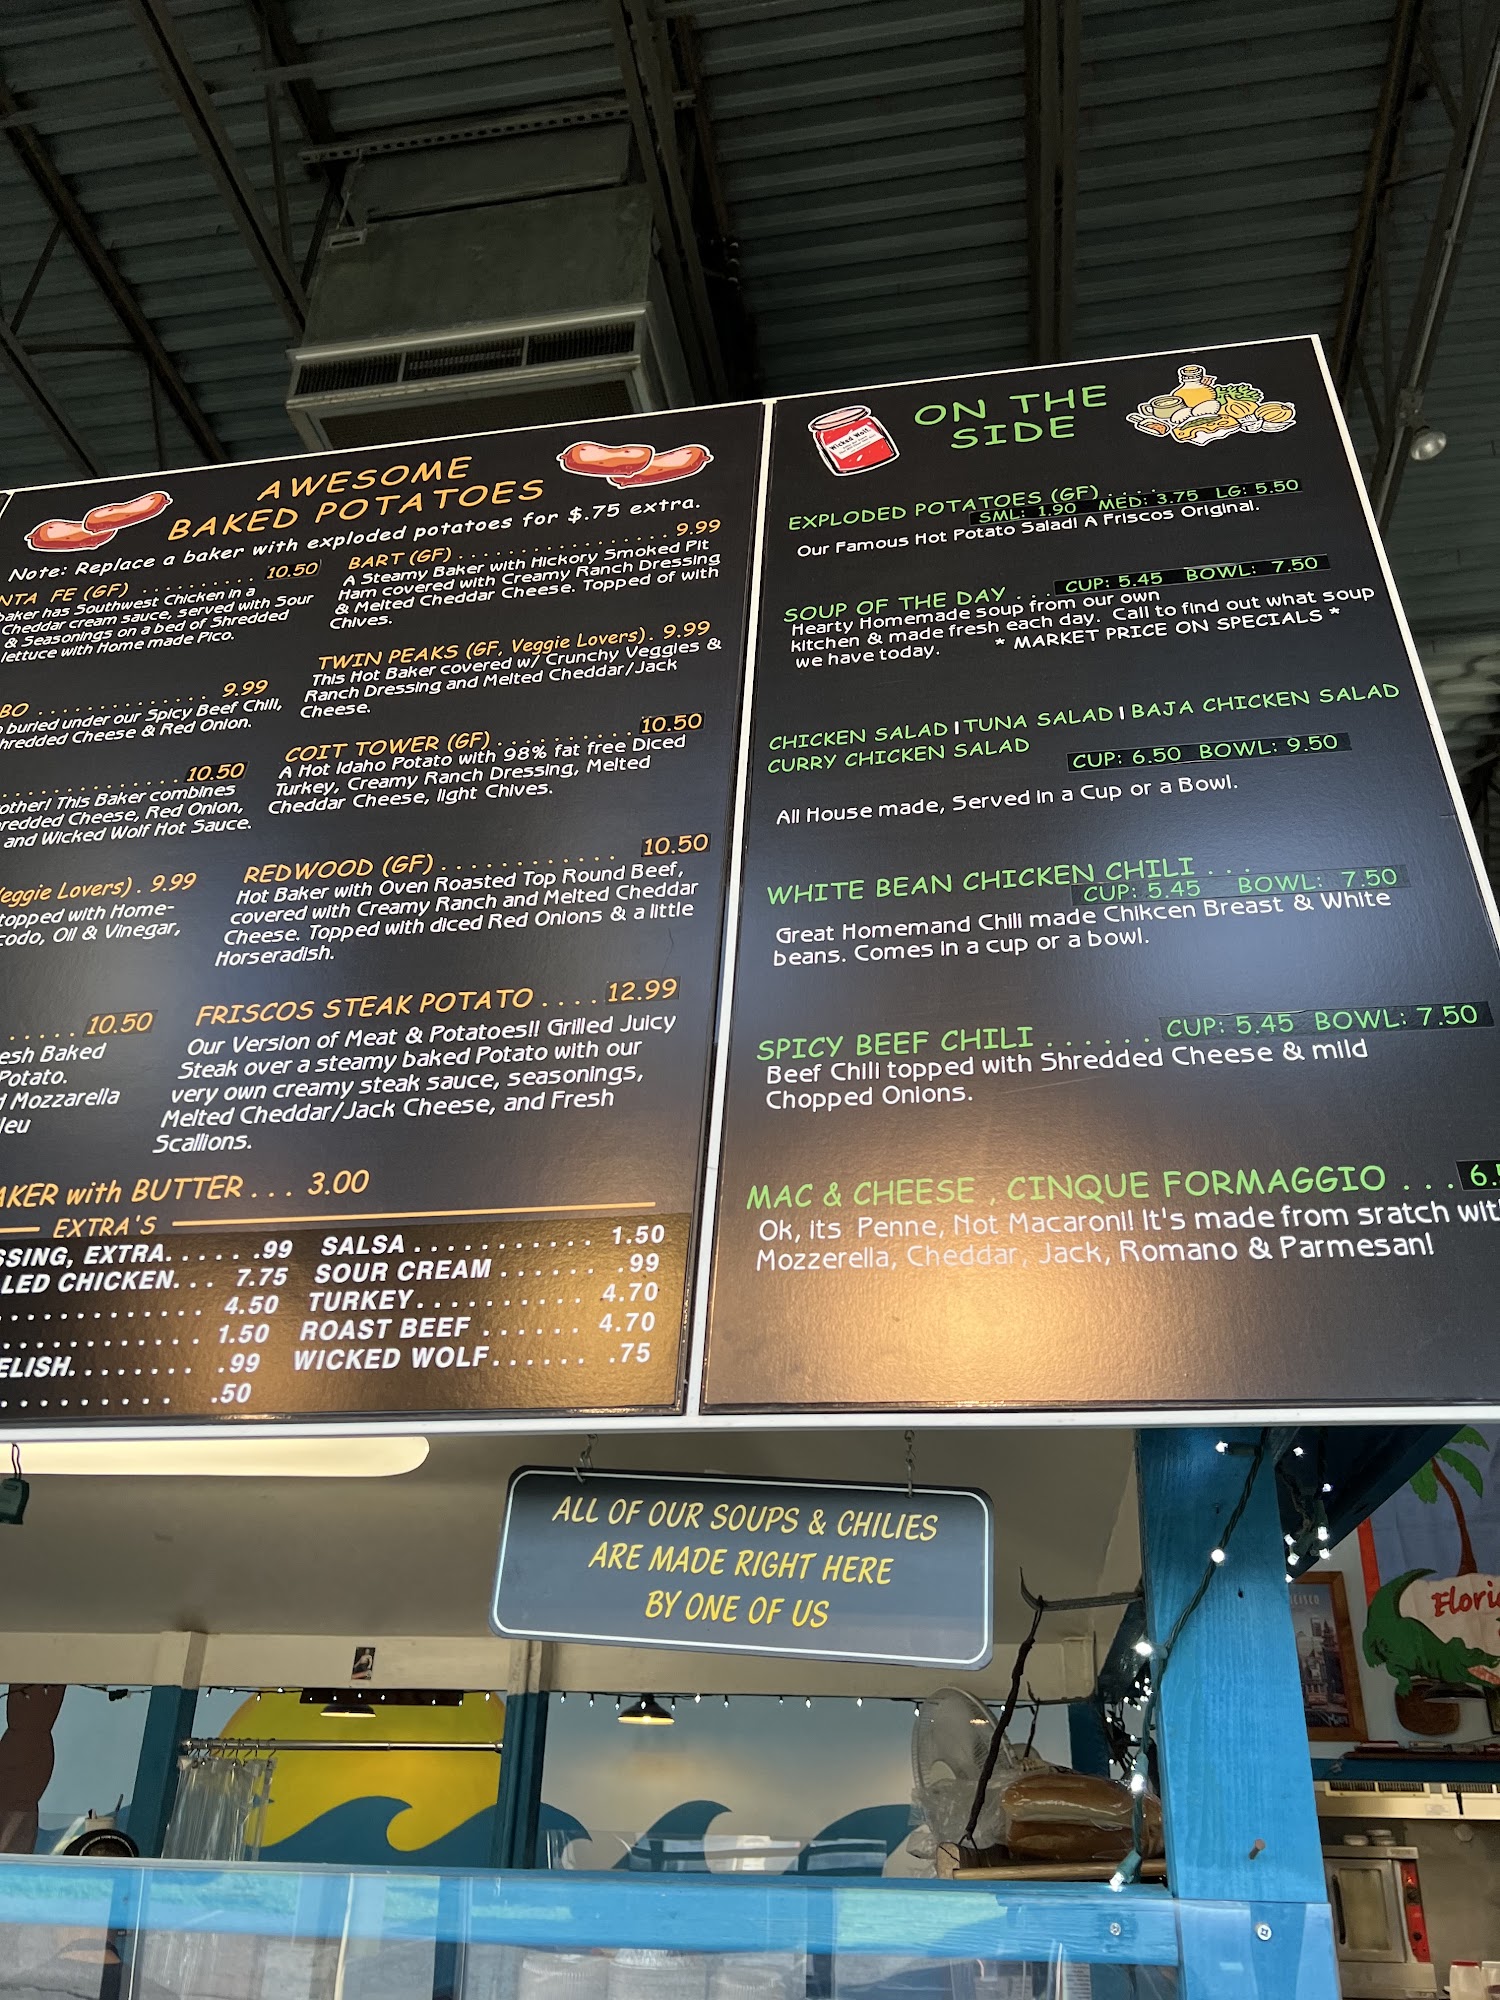 AWESOME
BAKED POTATOES
Note: Replace a baker with exploded potatoes for $.75 extra.
NTA FE (GF) . . . . . . . . . 10.50
baker has Southwest Chicken in a
Cheddar cream sauce, served with Sour
& Seasonings on a bed of Shredded
lettuce with Home made Pico.
BO . . . . . . . . . . . . . 9.99
buried under our Spicy Beef Chili,
hredded Cheese & Red Onion.
. . . . . . . . . . . . 10.50
other! This Baker combines
redded Cheese, Red Onion,
and Wicked Wolf Hot Sauce.
Veggie Lovers) . 9.99
topped with Home-
codo, Oil & Vinegar,
. . . . . 10.50
esh Baked
Potato.
d Mozzarella
leu
BART (GF) . . . . . . . . . . . . . . . . . 9.99
A Steamy Baker with Hickory Smoked Pit
Ham covered with Creamy Ranch Dressing
& Melted Cheddar Cheese. Topped of with
Chives.
TWIN PEAKS (GF, Veggie Lovers) . 9.99
This Hot Baker covered w/ Crunchy Veggies &
Ranch Dressing and Melted Cheddar/Jack
Cheese.
COIT TOWER (GF) . . . . . . . . . . 10.50
A Hot Idaho Potato with 98% fat free Diced
Turkey, Creamy Ranch Dressing, Melted
Cheddar Cheese, light Chives.
REDWOOD (GF) . . . . . . . . . . . . 10.50
Hot Baker with Oven Roasted Top Round Beef,
covered with Creamy Ranch and Melted Cheddar
Cheese. Topped with diced Red Onions & a little
Horseradish.
FRISCOS STEAK POTATO . . . . 12.99
Our Version of Meat & Potatoes!! Grilled Juicy
Steak over a steamy baked Potato with our
very own creamy steak sauce, seasonings,
Melted Cheddar/Jack Cheese, and Fresh
Scallions.
AKER with BUTTER . . . 3.00
EXTRA'S
SSING, EXTRA. . . . . . .99
LED CHICKEN. . . 7.75
. . . . . . . . . . . . 4.50
. . . . . . . . . . . . 1.50
ELISH. . . . . . . . .99
. . . . . . . . . .50
SALSA . . . . . . . . . . . . 1.50
SOUR CREAM . . . . . . .99
TURKEY. . . . . . . . . . . 4.70
ROAST BEEF . . . . . . 4.70
WICKED WOLF. . . . . . .75
Wicked Wolf
ON THE
SIDE
EXPLODED POTATOES (GF) . . . . .
SML: 1.90 MED: 3.75 LG: 5.50
Our Famous Hot Potato Salad! A Friscos Original.
SOUP OF THE DAY . . . CUP: 5.45 BOWL: 7.50
Hearty Homemade soup from our own
kitchen & made fresh each day. Call to find out what soup
we have today. * MARKET PRICE ON SPECIALS *
CHICKEN SALAD | TUNA SALAD | BAJA CHICKEN SALAD
CURRY CHICKEN SALAD CUP: 6.50 BOWL: 9.50
All House made, Served in a Cup or a Bowl.
WHITE BEAN CHICKEN CHILI . . .
CUP: 5.45 BOWL: 7.50
Great Homemand Chili made Chikcen Breast & White
beans. Comes in a cup or a bowl.
SPICY BEEF CHILI . . . . . . CUP: 5.45 BOWL: 7.50
Beef Chili topped with Shredded Cheese & mild
Chopped Onions.
MAC & CHEESE , CINQUE FORMAGGIO . . . 6.5
Ok, its Penne, Not Macaroni! It's made from sratch wit
Mozzerella, Cheddar, Jack, Romano & Parmesan!
ALL OF OUR SOUPS & CHILIES
ARE MADE RIGHT HERE
BY ONE OF US
Flori